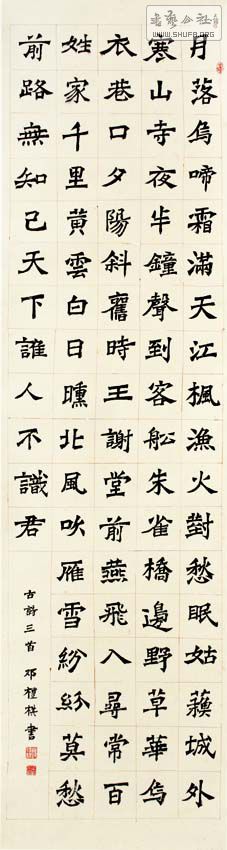 月落烏啼霜滿天江楓漁火對愁眠姑蘓城外
寒山寺夜半鐘聲到客舩朱雀橋邊野草華烏
衣巷口夕陽斜舊時王謝堂前燕飛入尋常百
姓家千里黄雲白日曛北風吹雁雪紛紛莫愁
前路無知己天下誰人不識君
古詩三首 邓禮棋書